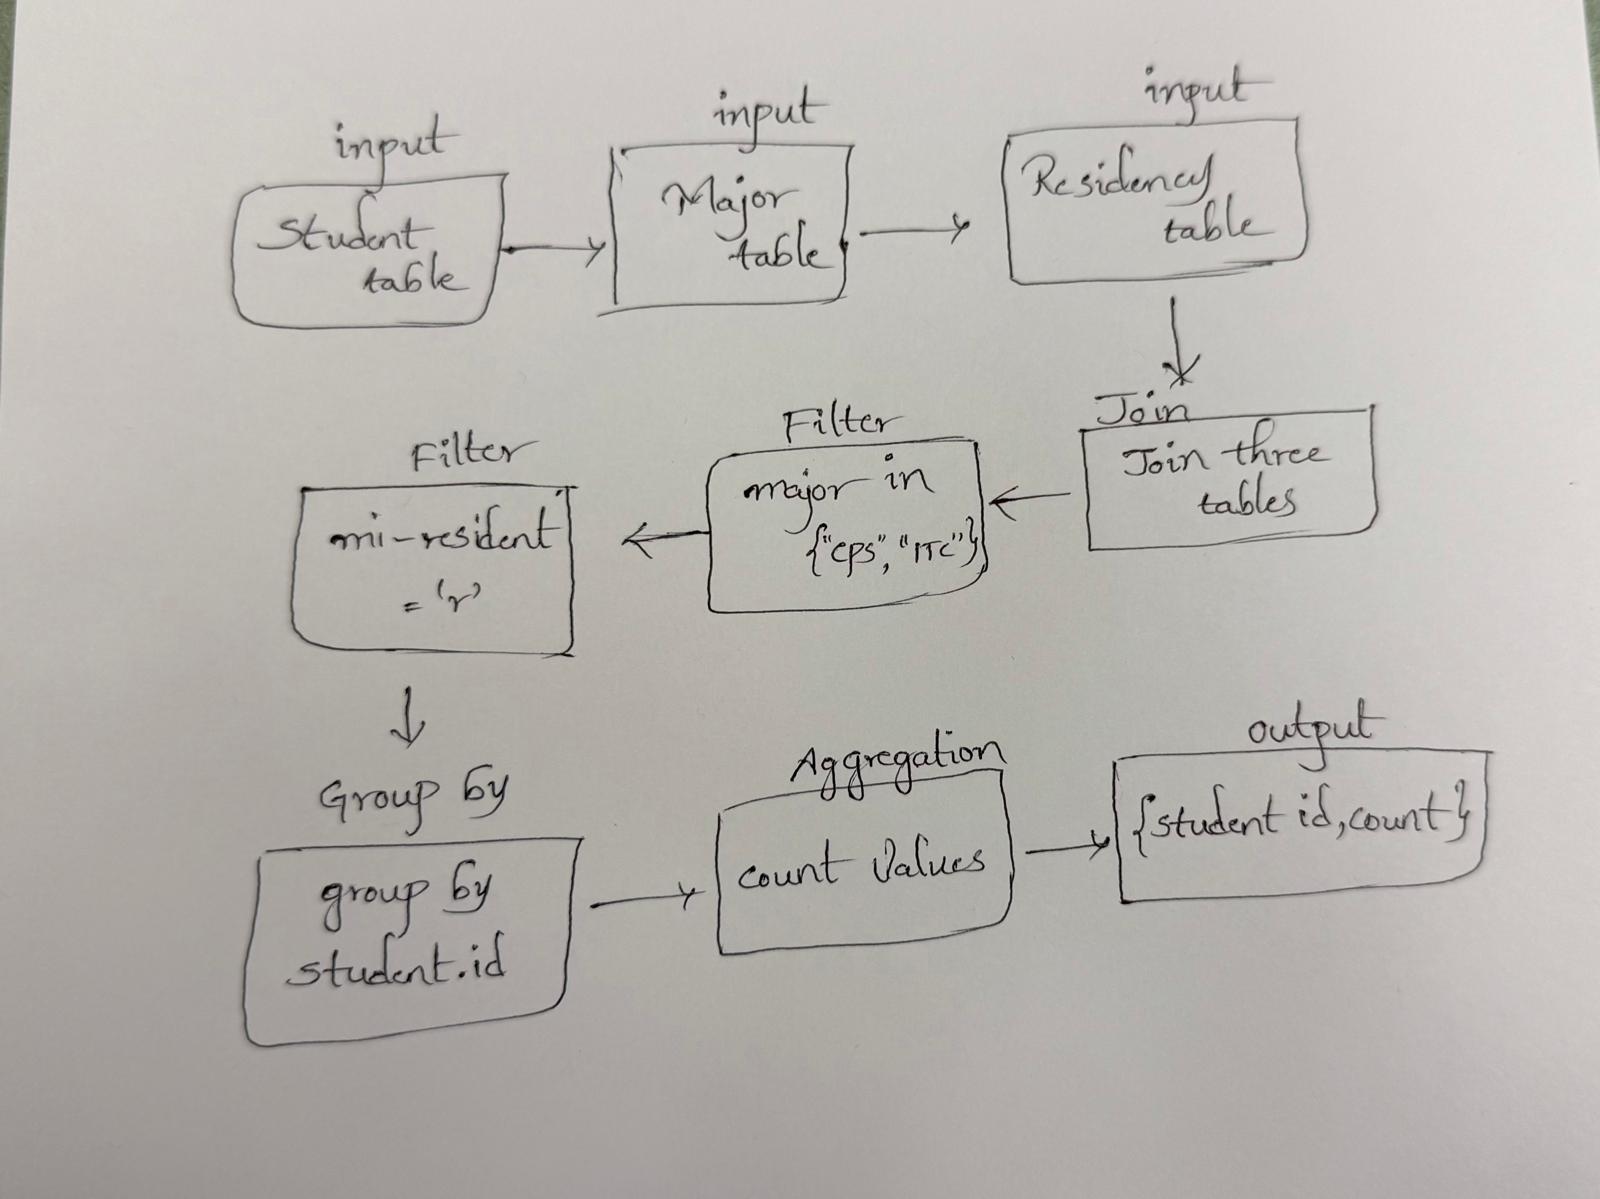 input
Student
table
input
Major
table
input
Residency
table
Join
Join three
tables
Filter
major in
{"CPS", "ITC"}
Filter
mi-resident
= 'r'
Group by
group by
student.id
Aggregation
count Values
output
{student id, count}